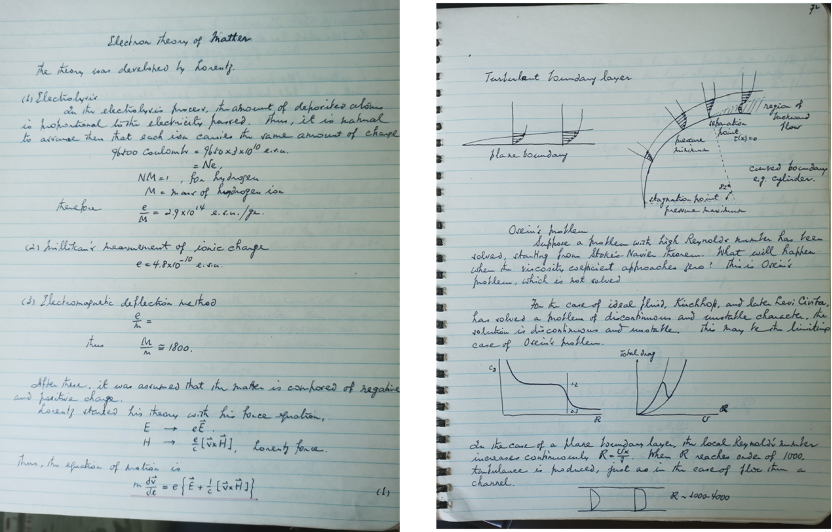 Electron theory of Matter
The theory was developed by Lorentz.
(1) Electrolysis
In the electrolysis process, the amount of deposited atoms
is proportional to the electricity passed. Thus, it is natural
to assume then that each ion carries the same amount of charge
9650 Coulombs = 9650 x 3 x 10^10 e.s.u.
= Ne,
NM = 1, for hydrogen
M = mass of hydrogen ion
therefore e/M = 2.9 x 10^14 e.s.u./gr.
(2) Millikan's measurement of ionic charge
e = 4.8 x 10^-10 e.s.u.
(3) Electromagnetic deflection method
e/m =
thus M/m ≅ 1800.
After these, it was assumed that the matter is composed of negative
and positive charge.
Lorentz started his theory with his force equation,
E → eE⃗.
H → e/c [v⃗ x H⃗], Lorentz force.
Thus, the equation of motion is
m dv⃗/dt = e {E⃗ + 1/c [v⃗ x H⃗]}
(1)
72
Turbulent boundary layer
plane boundary
separation
point
pressure
minimum
region of
backward
flow
curved boundary
e.g. cylinder.
stagnation point
pressure maximum
Oseen's problem
Suppose a problem with high Reynold's number has been
solved, starting from Stokes Navier theorem. What will happen
when the viscosity coeficient approaches zero? This is Oseen's
problem, which is not solved
For the case of ideal fluid, Kirchhoff, and late Levi Civita,
has solved a problem of discontinuous and unstable character. The
solution is discontinuous and unstable. This may be the limiting
case of Oseen's problem.
Total drag
R
U
In the case of a plane boundary layer, the local Reynold's number
increases continuously R = Ux/ν. When R reaches order of 1000,
turbulance is produced, just as in the case of flow thru a
channel.
R ~ 1000-4000